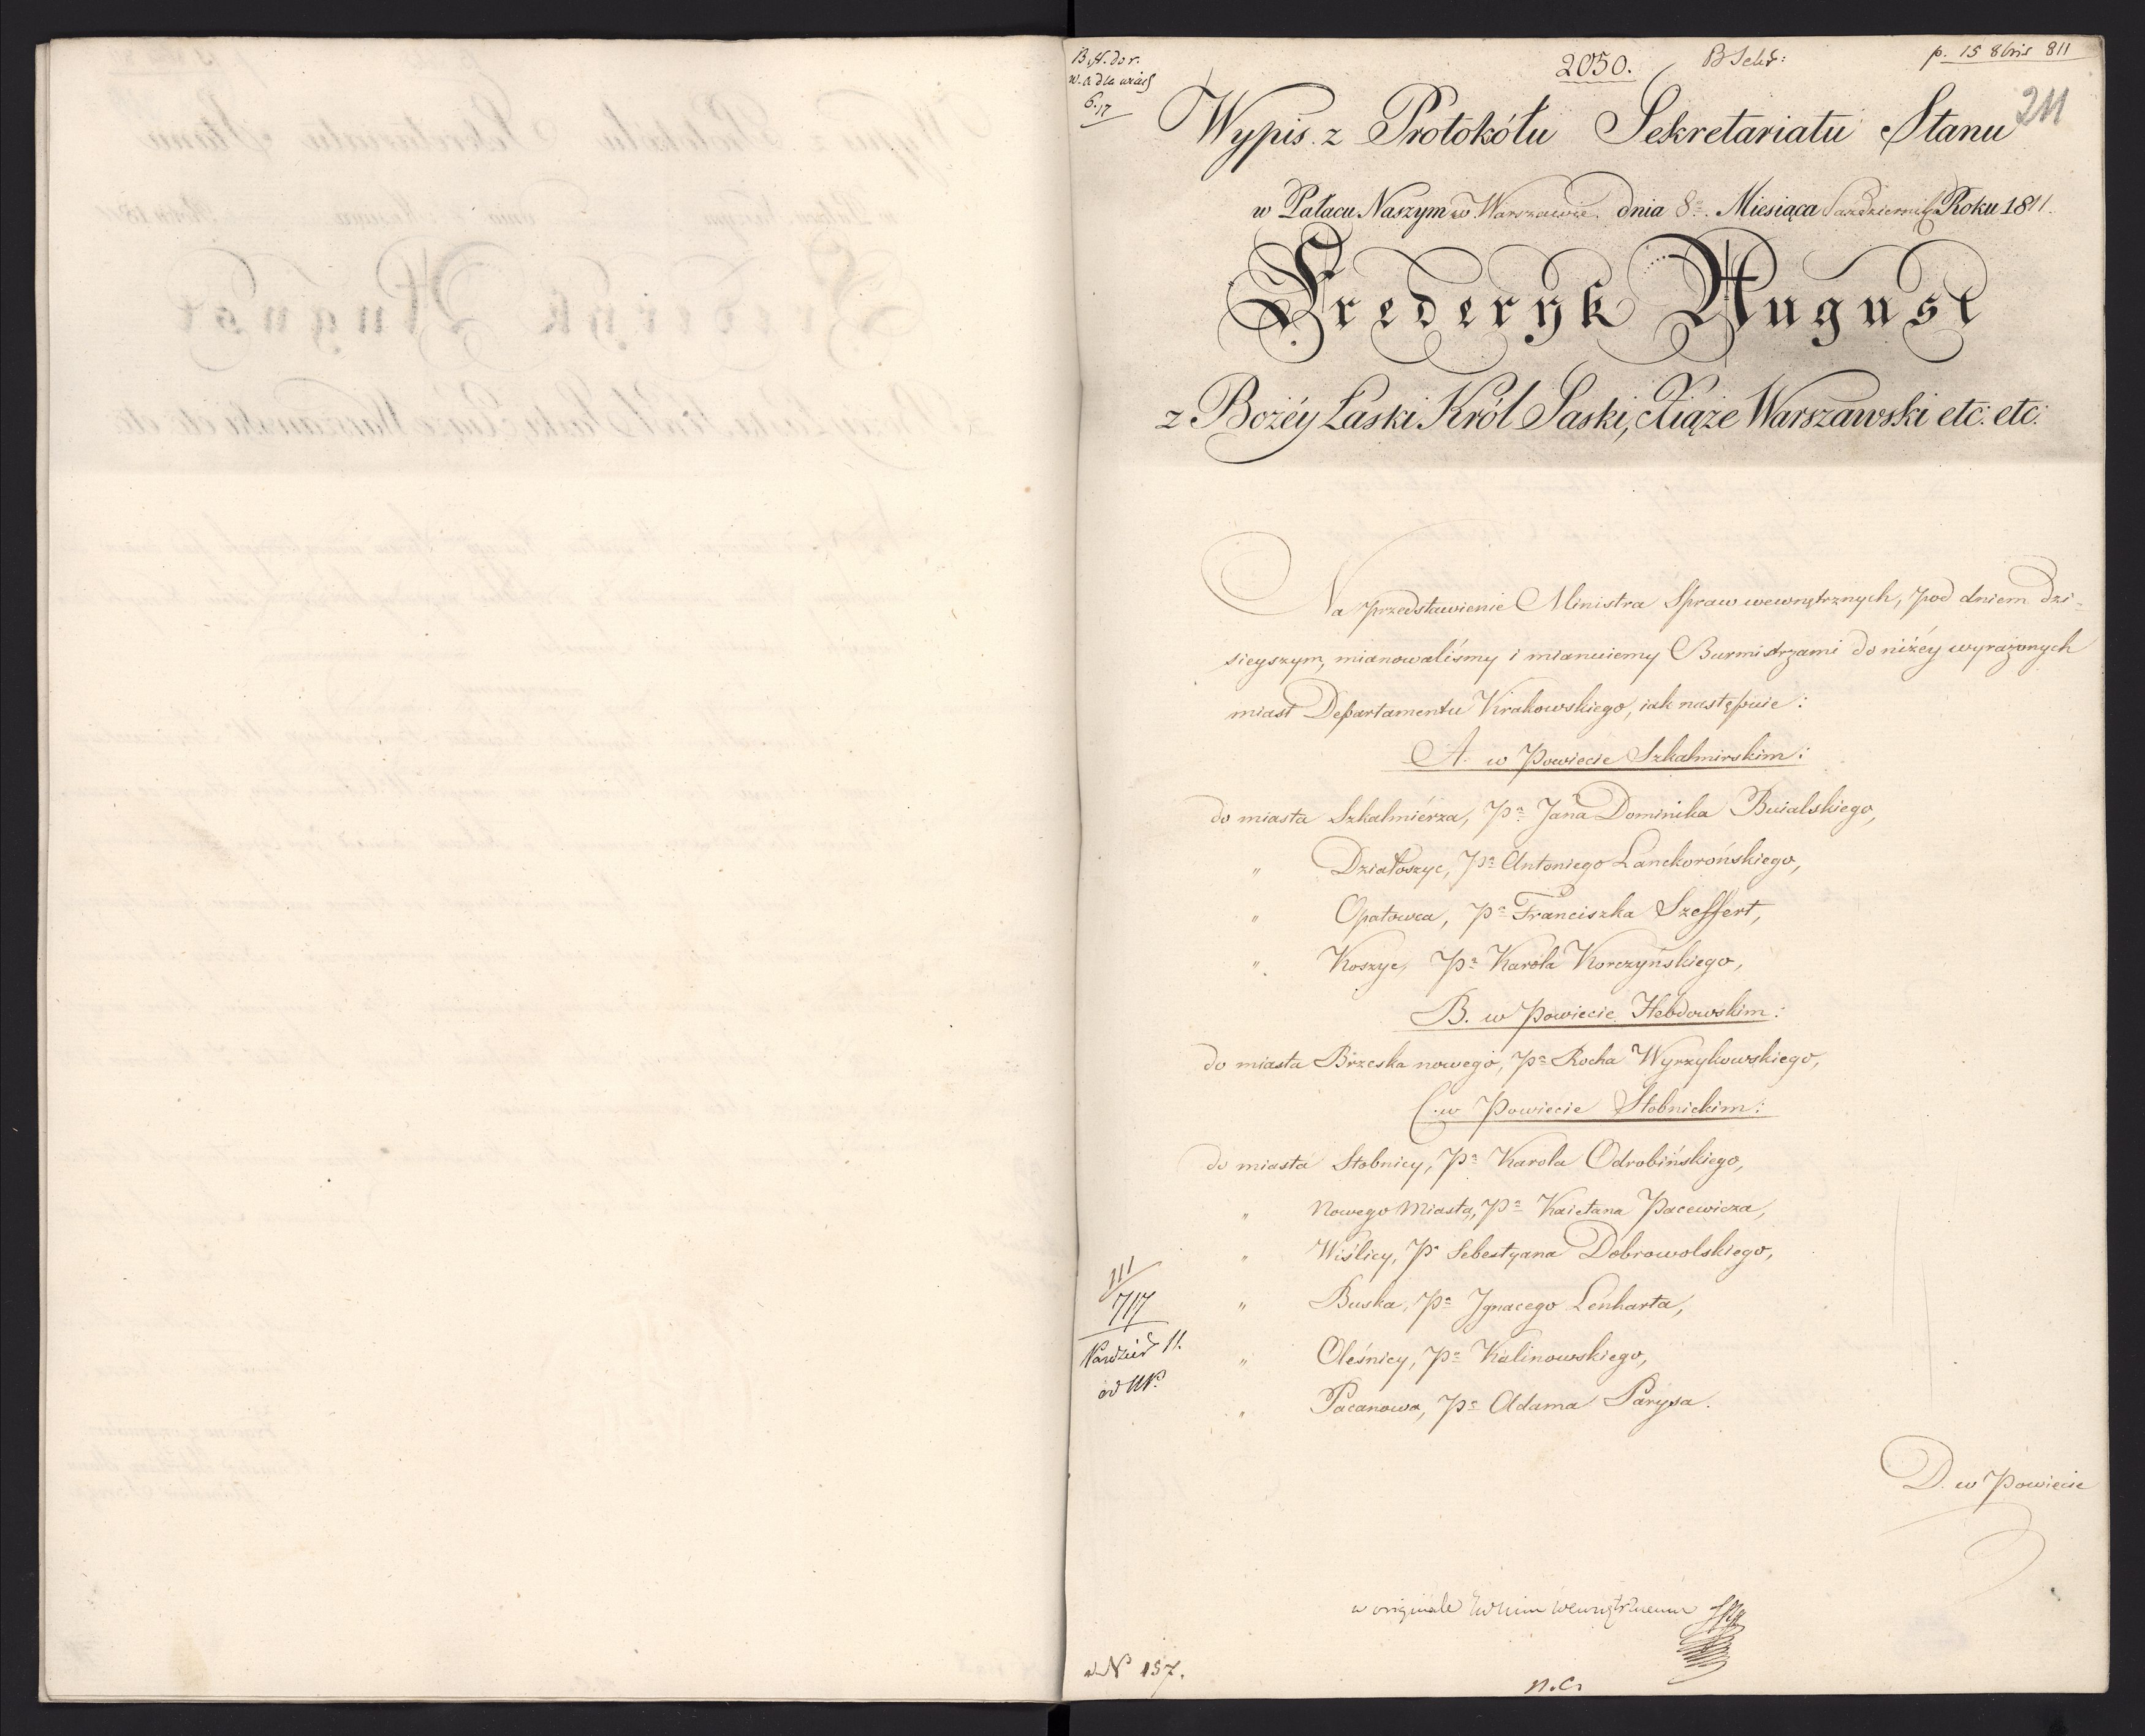 2050.
p. 15 8bris 811
211
6.17
Wypis z Protokółu Sekretariatu Stanu
w Pałacu Naszym w Warszawie dnia 8º. Miesiąca Października Roku 1811.
Frederyk August
z Bożéy Łaski Król Saski, Xiąże Warszawski etc: etc:
Na przedstawienie Ministra Spraw wewnętrznych, pod dniem dzi-
sieyszym, mianowaliśmy i mianuiemy Burmistrzami do niżéy wyrażonych
miast Departamentu Krakowskiego, iak następuie:
A. w Powiecie Szkalmirskim:
do miasta Szkalmiérza, Pª Jana Dominika Buialskiego,
" Działoszyc, Pª Antoniego Lanckorońskiego,
" Opatowca, Pª Franciszka Szeffert,
" Koszyc, Pª Karóla Korczyńskiego,
B. w Powiecie Hebdowskim:
do miasta Brzeska nowego, Pª Rocha Wyrzykowskiego,
C. w Powiecie Stobnickim:
do miasta Stobnicy, Pª Karola Odrobińskiego,
" Nowego Miasta, Pª Kaietana Pacewicza,
" Wiślicy, Pª Sebestyana Dobrowolskiego,
" Buska, Pª Jgnacego Lenharta,
" Oleśnicy, Pª Kalinowskiego,
" Pacanowa, Pª Adama Parysa.
III
717
D. w Powiecie
w originale
N 157.
n.c.